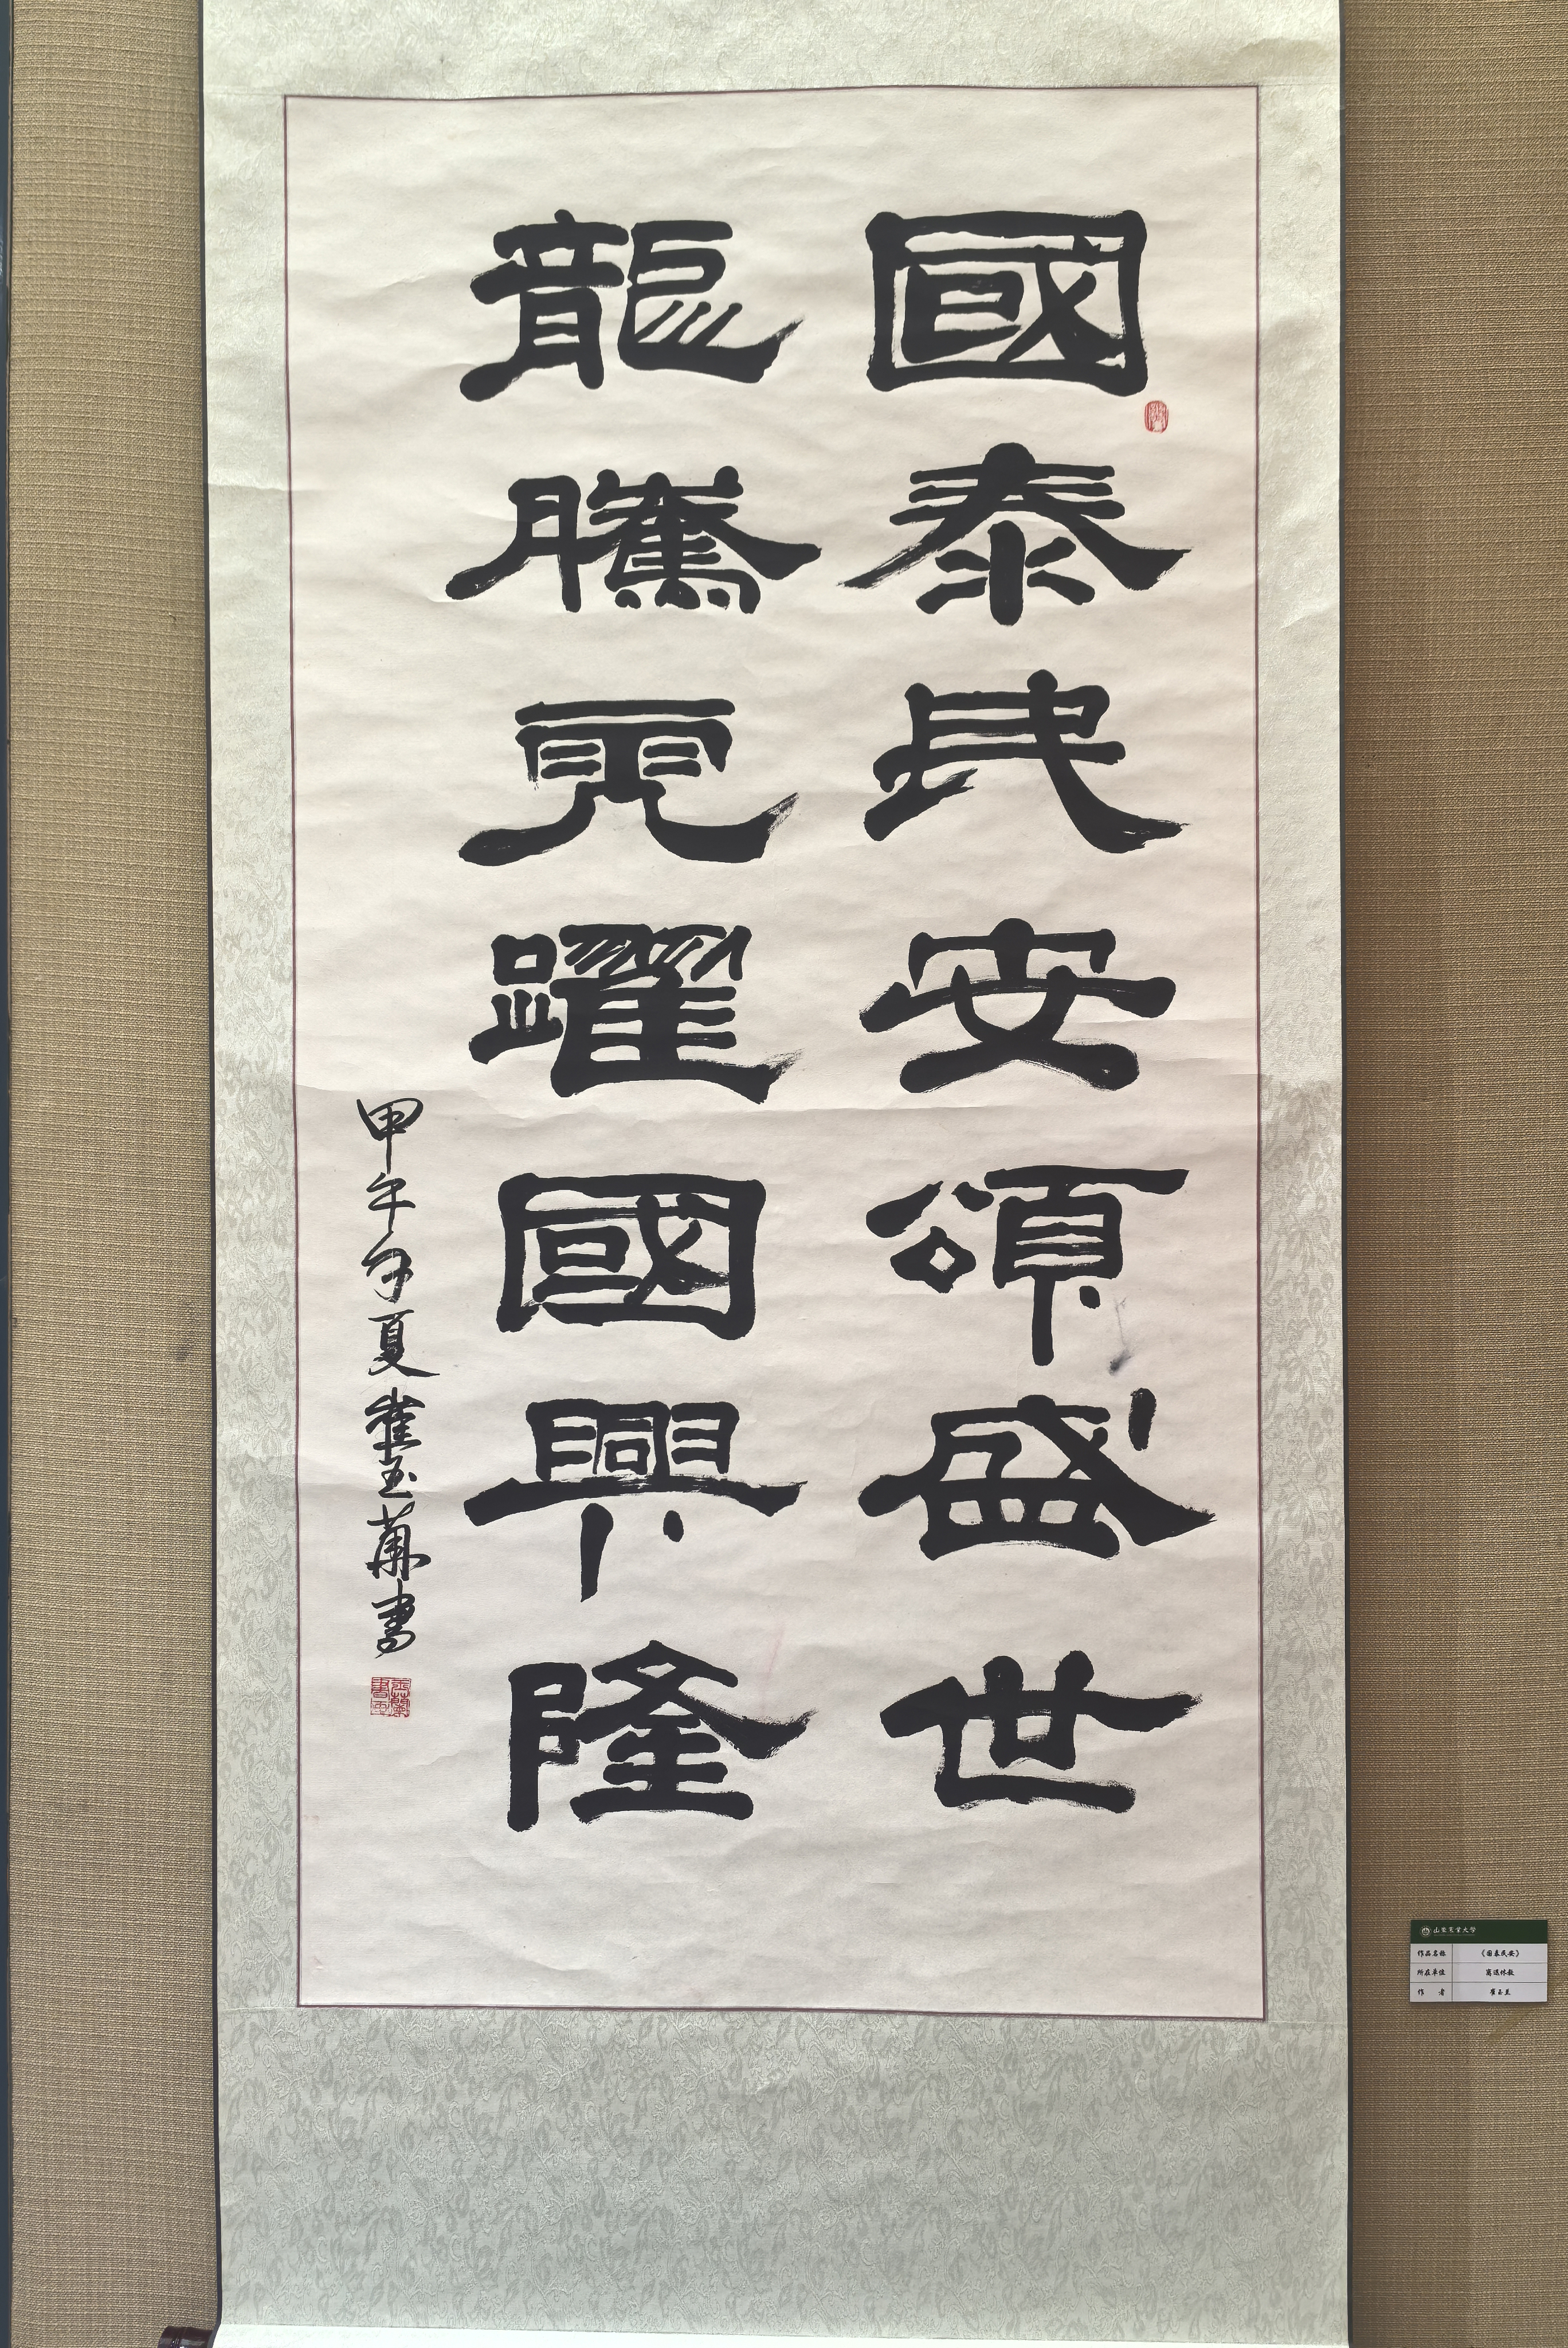 國泰民安頌盛世
龍騰虎躍國興隆
甲午年夏崔玉蘭書
山东农业大学
作品名称 《国泰民安》
所在单位 离退休处
作 者 崔玉兰